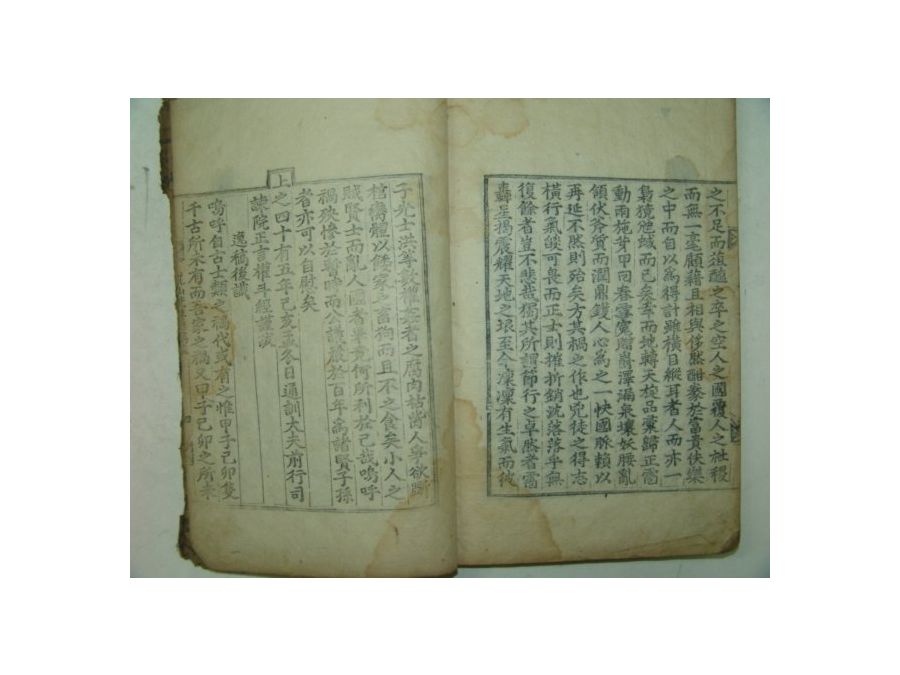 之不足而葅醢之卒之空人之國覆人之社稷
而無一毫顧藉且相與侈然酣豢於富貴佚樂
之中而自以為得計雖橫目縱耳者人而亦一
梟獍虺蜮而已矣幸而地轉天旋品彙歸正雷
動雨施芽甲回春雪寃贈爵澤漏泉壤妖腰亂
領伏斧質而濶鼎鑊人心為之一快國脉賴以
再延不然則殆矣方其禍之作也兇徒之得志
橫行氣㷔可畏而正士則摧折銷沈落落乎無
復餘者豈不悲哉獨其所謂節行之卓然者雷
轟星揭震耀天地之垠至今凜凜有生氣而彼
子光士洪等數雜姦者之腐肉枯
人爭欲
棺
體以
家之
狗而且不之食矣小人之
賊賢士而亂人國者畢竟何所利於己哉嗚呼
禍殃慘於
時而公議嚴於百年高諸賢子孫
者亦可以自慰矣
上之四十有五年己亥孟冬日通訓大夫前行司
諫院正言權斗經謹識
逸稿後識
嗚呼自古士類之禍代或有之惟甲子己卯隻
千古所未有而吾家之禍又甲子己卯之所未